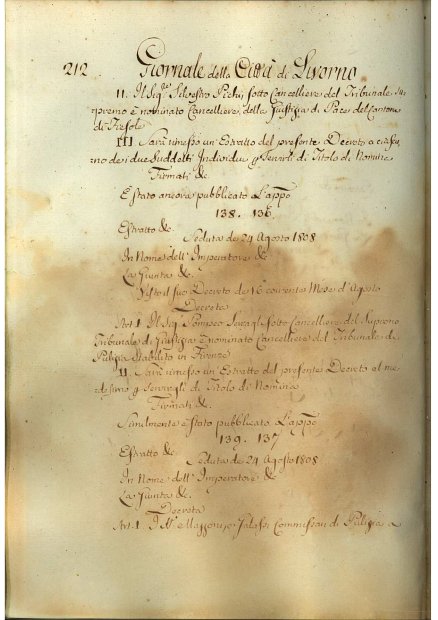 212 Giornale della Città di Livorno
II. Il Sig.r Silvestro sotto Cancelliere del Tribunale Su
premo è nominato Cancelliere della Giustizia di Pace del Cantone
di Fiesole
III. Sarà rimesso un Estratto del presente Decreto a ciascu
no de i due Suddetti Individui p Servirli di Titolo di Nomina
Firmati &c.
È stato ancora pubblicato L'appo
138. 136.
Estratto &c.
Seduta de 24 Agosto 1808
In Nome dell' Imperatore &c
La Giunta &c.
Visto il suo Decreto de 16 corrente Mese d'Agosto
Decreta
Art. 1. Il Sig. Pompeo sotto Cancelliere del Supremo
Tribunale di Giustizia è nominato Cancelliere del Tribunale di
Pulizia Stabilito in Firenze
II. Sarà rimesso un Estratto del presente Decreto al me
desimo p Servirgli di Titolo di Nomina
Firmati &c.
Similmente è stato pubblicato L'appo
139. 137
Estratto &c.
Seduta de 24 Agosto 1808
In Nome dell' Imperatore &c
La Giunta &c.
Decreta
Art. 1. I Commissari di Pulizia a